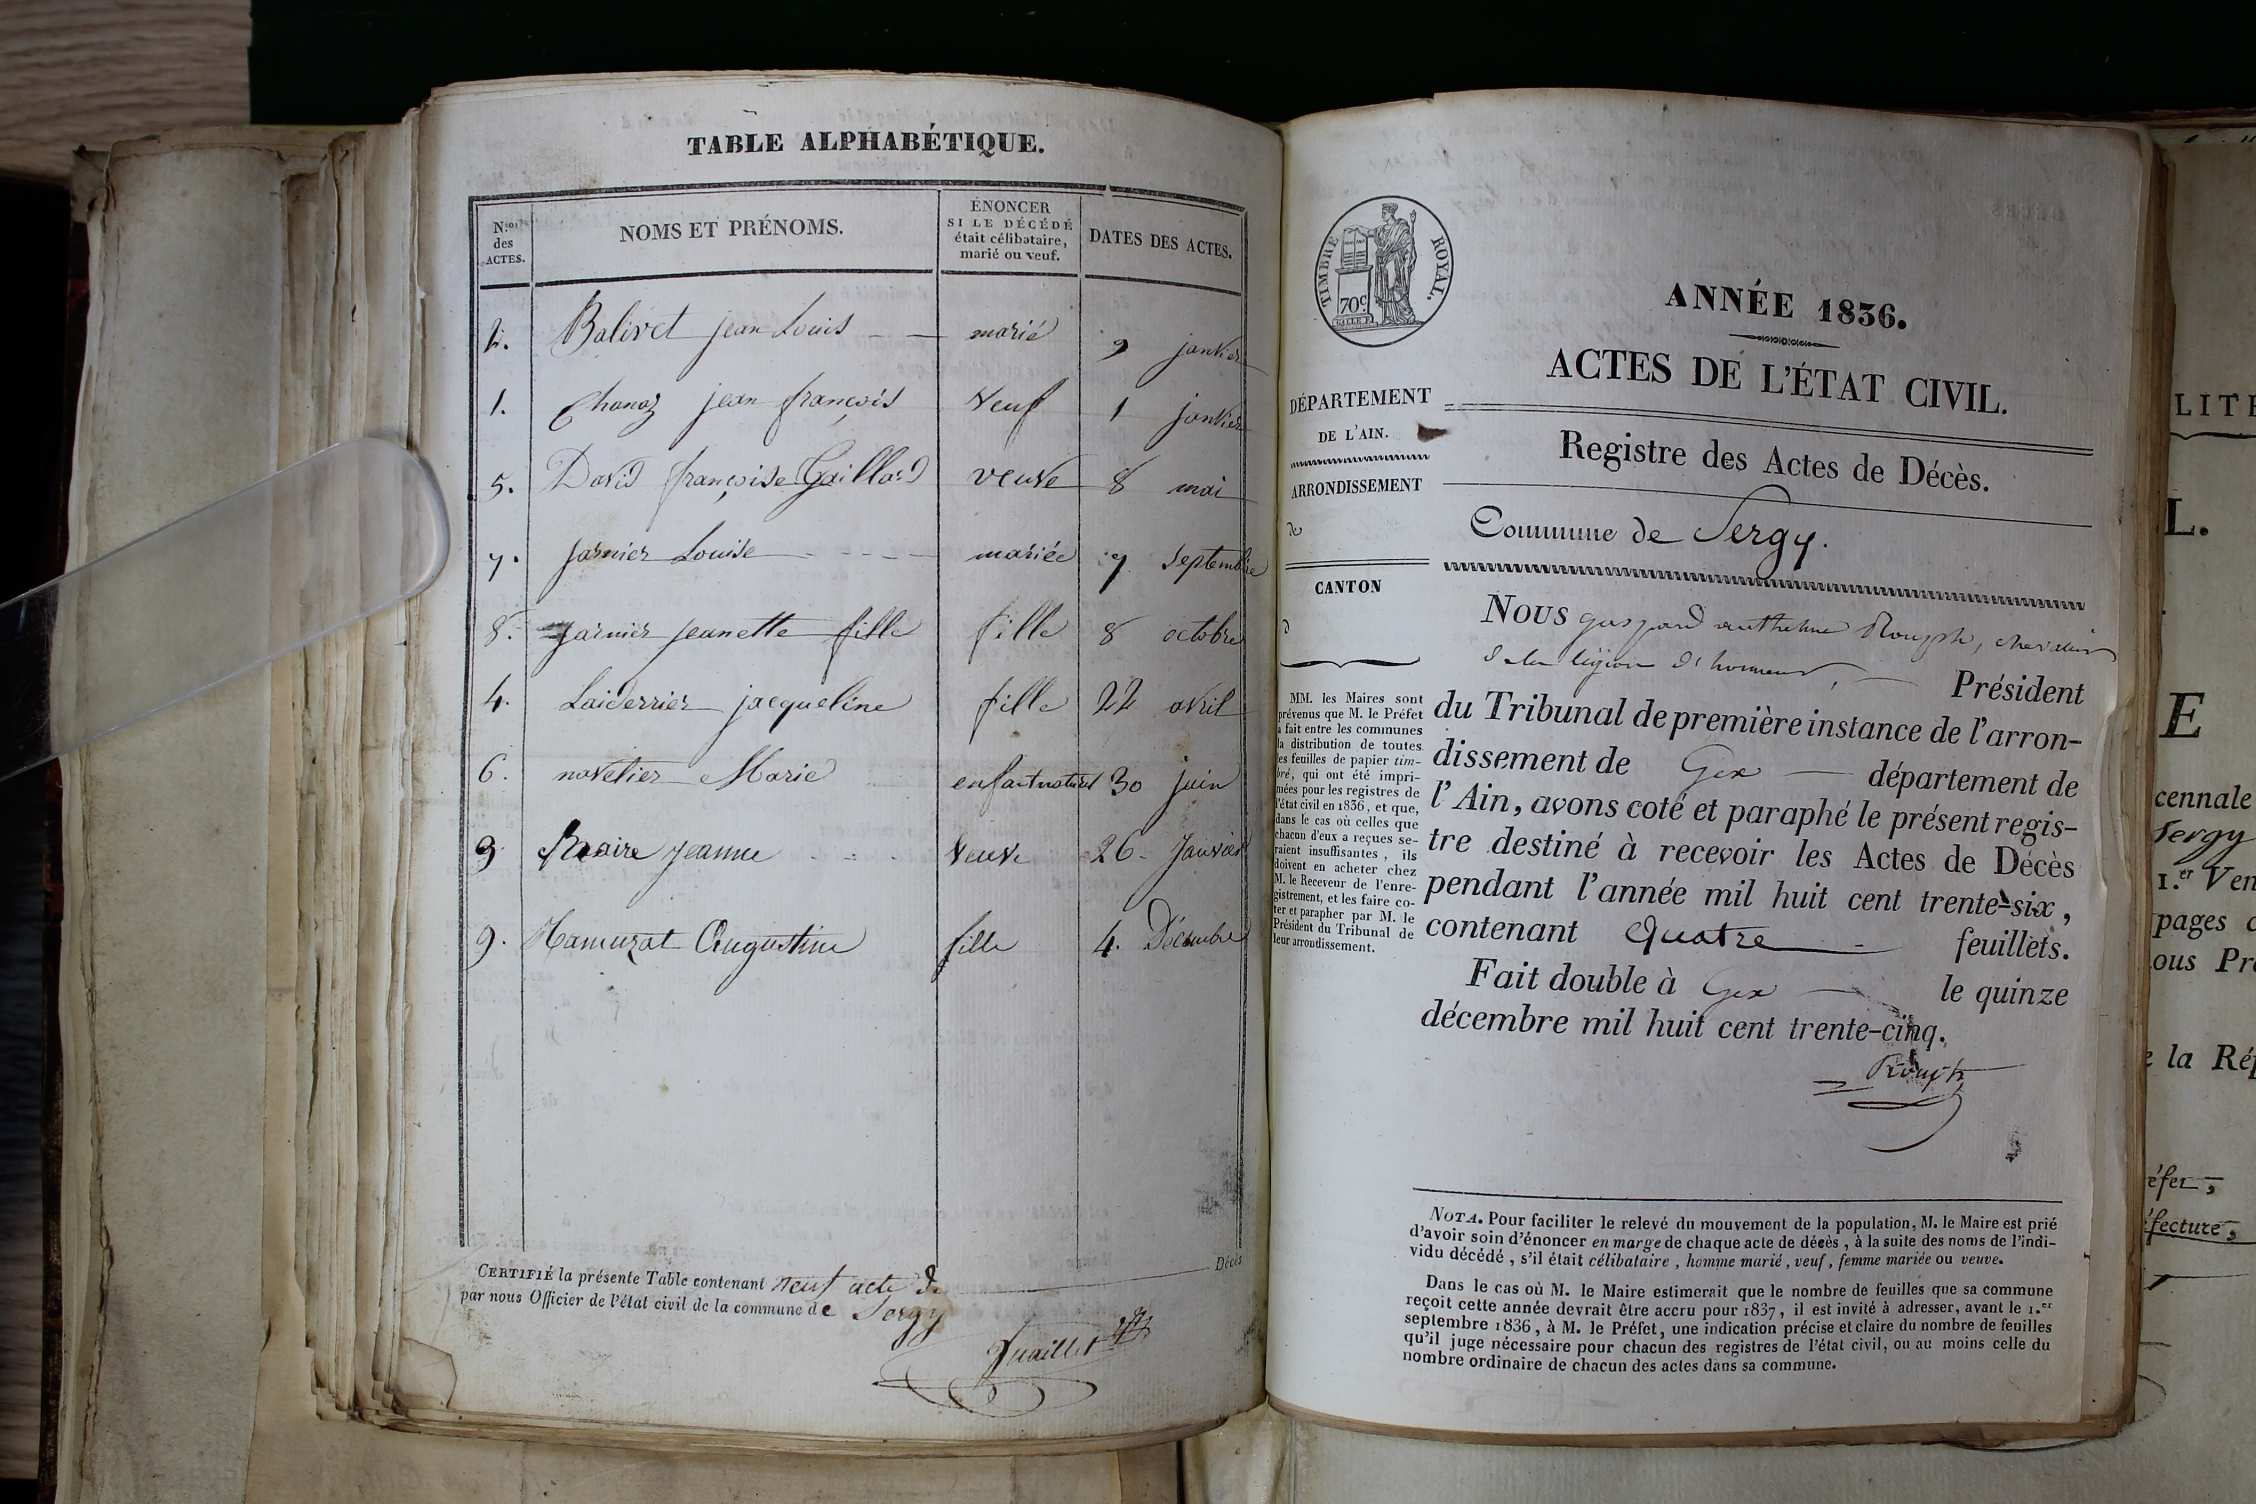 TABLE ALPHABÉTIQUE.
N.os des ACTES.
NOMS ET PRÉNOMS.
ÉNONCER
SI LE DÉCÉDÉ
était célibataire,
marié ou veuf.
DATES DES ACTES.
2. Balivet jean Louis marié 9 janvier
1. Chanoz jean françois Veuf 1 janvier
5. David françoise Gaillard veuve 8 mai
7. jarnier Louise mariée 7 septembre
8. jarnier jeanette fille fille 8 octobre
4. Laiderrier jacqueline fille 22 avril
6. novelier Marie enfant naturel 30 juin
3 jeanne Veuve 26 Janvier
9. Hamurat Augustine fille 4. Décembre
CERTIFIÉ la présente Table contenant neuf acte de Décès
par nous Officier de l'état civil de la commune de Sergy
TIMBRE ROYAL.
70 c
ANNÉE 1836.
ACTES DE L'ÉTAT CIVIL.
DÉPARTEMENT
DE L'AIN.
ARRONDISSEMENT
de
CANTON
d
MM. les Maires sont
prévenus que M. le Préfet
a fait entre les communes
la distribution de toutes
les feuilles de papier tim-
bré, qui ont été impri-
mées pour les registres de
l'état civil en 1836, et que,
dans le cas où celles que
chacun d'eux a reçues se-
raient insuffisantes, ils
doivent en acheter chez
M. le Receveur de l'enre-
gistrement, et les faire co-
ter et parapher par M. le
Président du Tribunal de
leur arrondissement.
Registre des Actes de Décès.
Commune de Sergy.
NOUS gaspard anthelme Rouph, chevalier
de la légion d'honneur, Président
du Tribunal de première instance de l'arron-
dissement de Gex département de
l'Ain, avons coté et paraphé le présent regis-
tre destiné à recevoir les Actes de Décès
pendant l'année mil huit cent trente-six,
contenant quatre feuillets.
Fait double à Gex le quinze
décembre mil huit cent trente-cinq.
NOTA. Pour faciliter le relevé du mouvement de la population, M. le Maire est prié
d'avoir soin d'énoncer en marge de chaque acte de décès, à la suite des noms de l'indi-
vidu décédé, s'il était célibataire, homme marié, veuf, femme mariée ou veuve.
Dans le cas où M. le Maire estimerait que le nombre de feuilles que sa commune
reçoit cette année devrait être accru pour 1837, il est invité à adresser, avant le 1.er
septembre 1836, à M. le Préfet, une indication précise et claire du nombre de feuilles
qu'il juge nécessaire pour chacun des registres de l'état civil, ou au moins celle du
nombre ordinaire de chacun des actes dans sa commune.
LITÉ
L.
E
cennale
Sergy
1.er Ven
pages
ous Pr
la Ré
éfet,
éfecture,